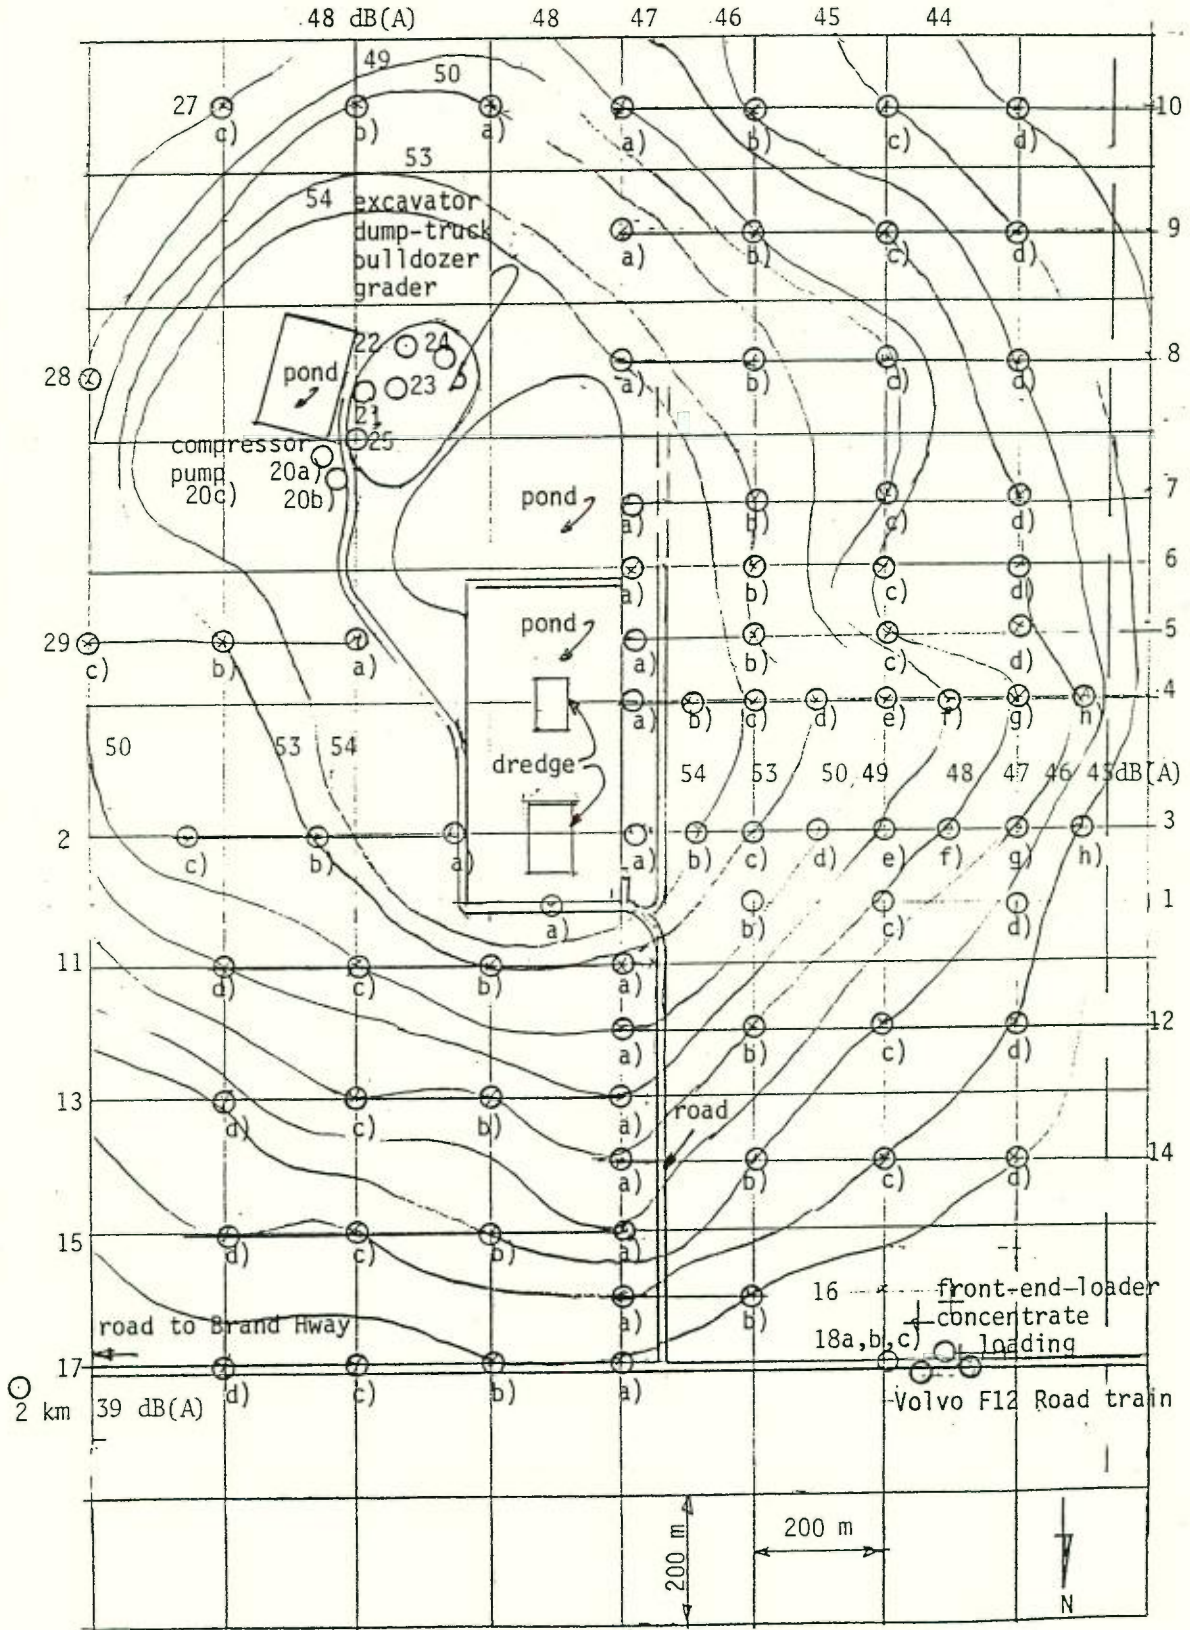 48 dB(A) 48 47 46 45 44
49
50
27 c) b) a) a) b) c) d) 10
53
54 excavator
dump-truck
bulldozer
grader
a) b) c) d) 9
22 24
28 pond a) b) d) d) 8
23
21
25
compressor
pump 20a)
20c) 20b)
pond a) b) c) d) 7
a) b) c) d) 6
pond
29 c) b) a) a) b) c) d) 5
a) b) c) d) e) f) g) h 4
50 53 54 dredge 54 53 50 49 48 47 46 45 dB(A)
2 c) b) a) a) b) c) d) e) f) g) h) 3
a) b) c) d) 1
11 d) c) b) a)
a) b) c) d) 12
13 d) c) b) a)
road
a) b) c) d) 14
15 d) c) b) a)
16 front-end-loader
a) b) concentrate
road to Brand Hway 18a,b,c) loading
17 d) c) b) a)
2 km 39 dB(A) Volvo F12 Road train
200 m
200 m
N